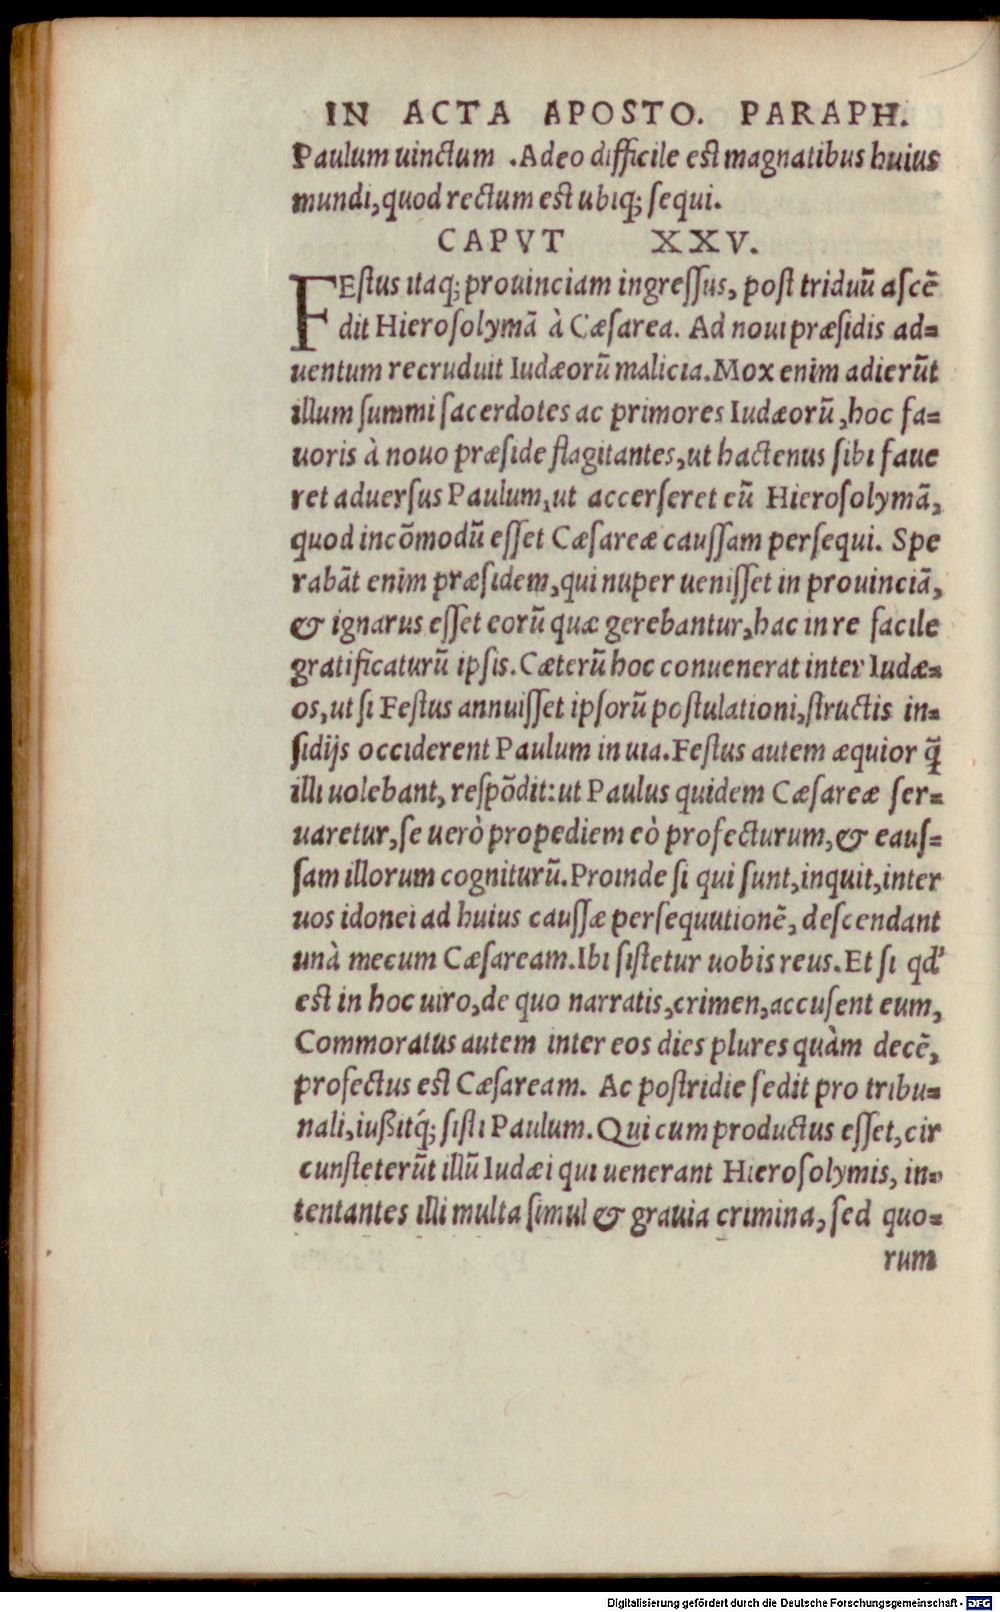 IN ACTA APOSTO. PARAPH.
Paulum uinctum .Adeo difficile est magnatibus huius
mundi, quod rectum est ubiq; sequi.
CAPVT XXV.
FEstus itaq; prouinciam ingressus, post triduũ ascẽ
dit Hierosolymã à Cæsarea. Ad noui præsidis ad=
uentum recruduit Iudæorũ malicia. Mox enim adierũt
illum summi sacerdotes ac primores Iudæorũ, hoc fa=
uoris à nouo præside flagitantes, ut hactenus sibi faue
ret aduersus Paulum, ut accerseret eũ Hierosolymã,
quod incõmodũ esset Cæsareæ caussam persequi. Spe
rabãt enim præsidem, qui nuper uenisset in prouinciã,
& ignarus esset eorũ quæ gerebantur, hac in re facile
gratificaturũ ipsis. Cæterũ hoc conuenerat inter Iudæ=
os, ut si Festus annuisset ipsorũ postulationi, structis in=
sidijs occiderent Paulum in uia. Festus autem æquior q̃
illi uolebant, respõdit: ut Paulus quidem Cæsareæ ser=
uaretur, se uerò propediem eò profecturum, & eaus=
sam illorum cogniturũ. Proinde si qui sunt, inquit, inter
uos idonei ad huius caussæ persequutionẽ, descendant
unà mecum Cæsaream. Ibi sistetur uobis reus. Et si qd'
est in hoc uiro, de quo narratis, crimen, accusent eum,
Commoratus autem inter eos dies plures quàm decẽ,
profectus est Cæsaream. Ac postridie sedit pro tribu=
nali, iußitq́; sisti Paulum. Qui cum productus esset, cir
cunsteterũt illũ Iudæi qui uenerant Hierosolymis, in=
tentantes illi multa simul & grauia crimina, sed quo=
rum
Digitalisierung gefördert durch die Deutsche Forschungsgemeinschaft - DFG